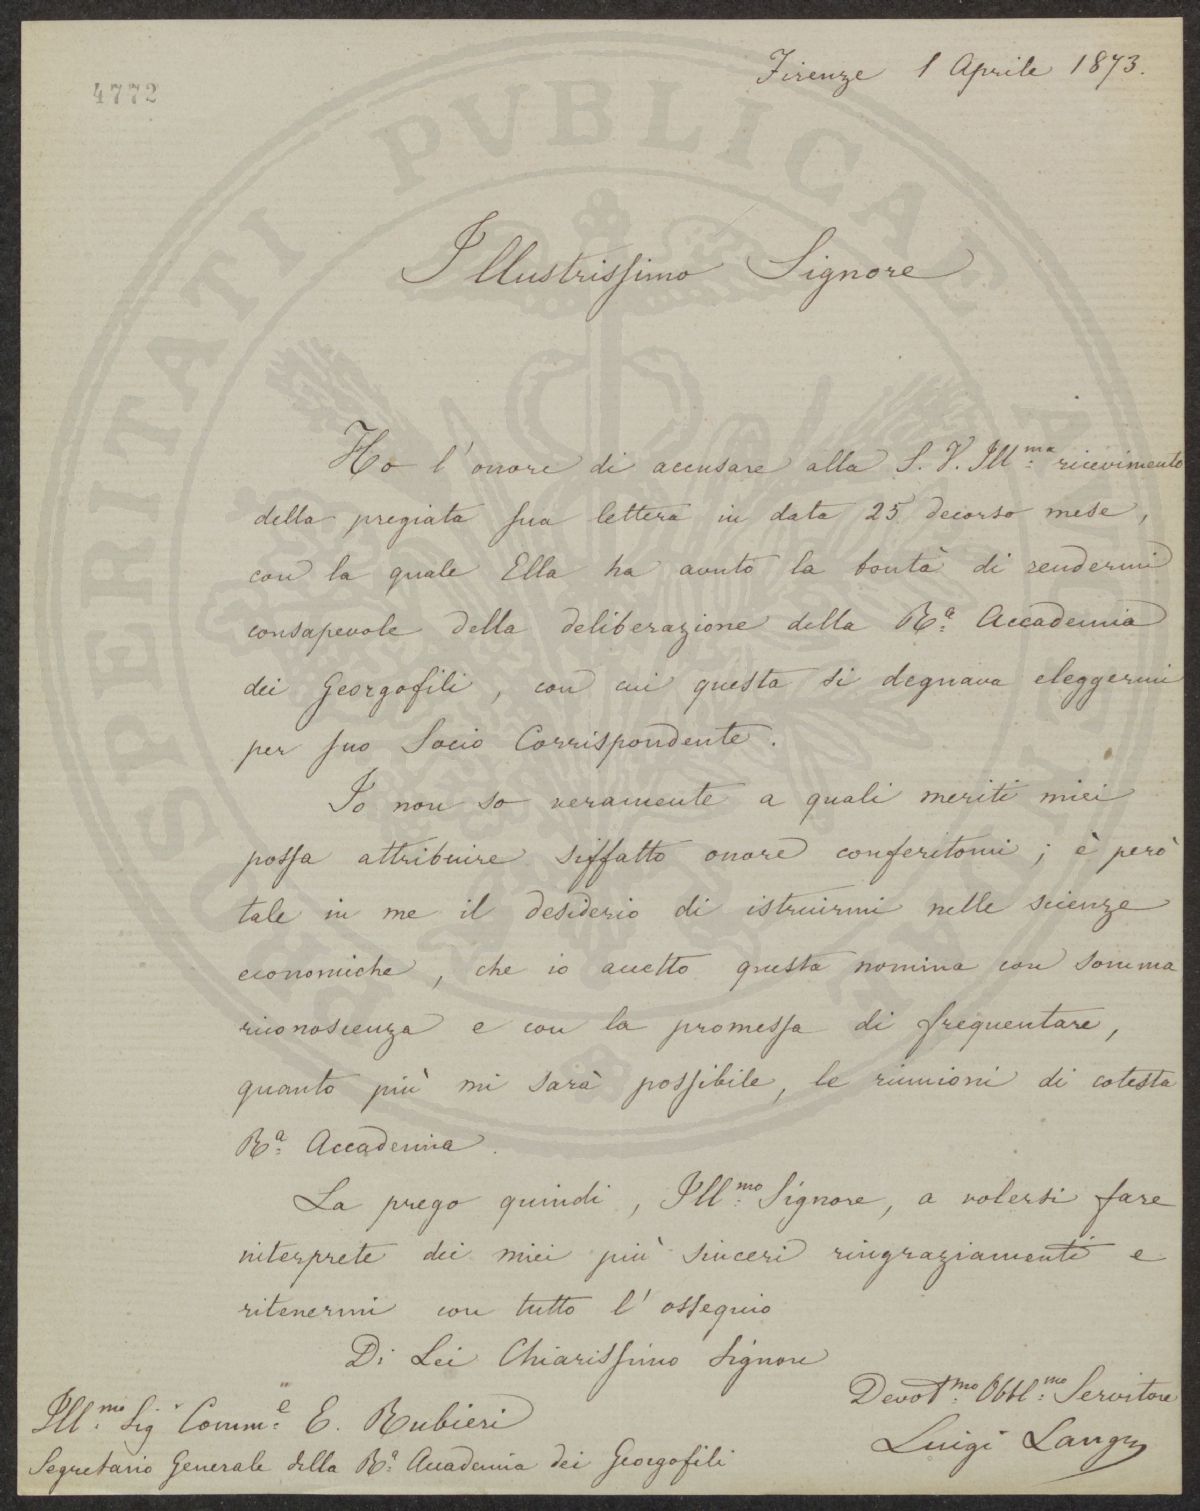 Firenze 1 Aprile 1873.
4772
PROSPERITATI PUBLICAE AUGENDAE
Illustrissimo Signore
Ho l'onore di accusare alla S. V. Ill.ma ricevimento
della pregiata sua lettera in data 25 decorso mese,
con la quale Ella ha avuto la bontà di rendermi
consapevole della deliberazione della R.a Accademia
dei Georgofili, con cui questa si degnava eleggermi
per suo Socio Corrispondente.
Io non so veramente a quali meriti miei
possa attribuire siffatto onore conferitomi; è però
tale in me il desiderio di istruirmi nelle scienze
economiche, che io accetto questa nomina con somma
riconoscenza e con la promessa di frequentare,
quanto più mi sarà possibile, le riunioni di cotesta
R.a Accademia.
La prego quindi, Ill.mo Signore, a volersi fare
interprete dei miei più sinceri ringraziamenti e
ritenermi con tutto l'ossequio
Di Lei Chiarissimo Signore
Devot.mo Obbl.mo Servitore
Luigi
Ill.mo Sig.r Comm.e E. Rubieri
Segretario Generale della R.a Accademia dei Georgofili